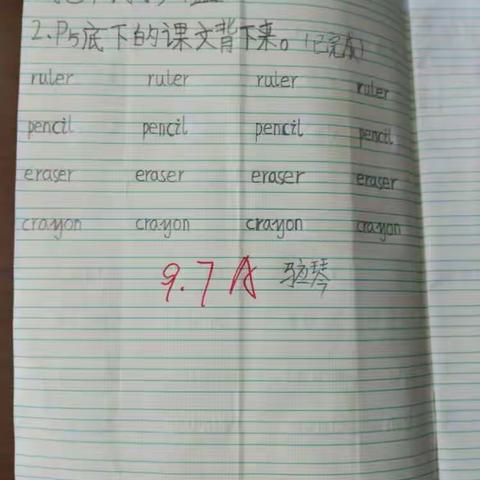 2、P5底下的课文背下来。(已完成)
ruler ruler ruler ruler
pencil pencil pencil pencil
eraser eraser eraser eraser
crayon crayon crayon crayon
9.7 A 琴